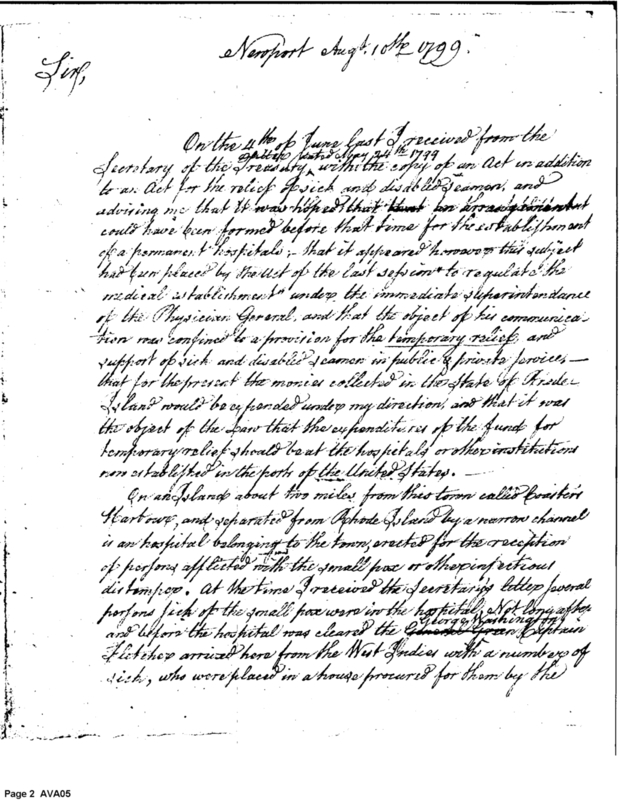 Newport Augt. 10th 1799.
Sir,
On the 4th of June last I received from the
letter dated May 24th 1799
Secretary of the Treasury, with the copy of an Act in addition
to an Act for the relief of sick and disabled seamen, and
advising me that it was hoped that an arrangement
could have been formed before that time for the establishment
of a permanent hospitals,- that it appeared however this subject
had been placed by the act of the last session "to regulate the
medical establishment" under the immediate superintendance
of the Physician General, and that the object of his communica-
tion was confined to a provision for the temporary relief and
support of sick and disabled seamen in public & private services—
that for the present the monies collected in the State of Rhode
Island would be expended under my direction, and that it was
the object of the Law that the expenditures of the fund for
temporary relief should be at the hospitals or other institutions
now established in the ports of the United States. —
On an Island about two miles from this town called Coasters
Harbour, and separated from Rhode Island by a narrow channel
is an hospital belonging to the town, erected for the reception
of persons afflicted with the small pox or other infectious
distemper. At the time I received the Secretary's letter several
persons sick of the small pox were in the hospital. Not long after
George Washington
and before the hospital was cleared the General Green Captain
Fletcher arrived here from the West Indies with a number of
sick, who were placed in a house procured for them by the
Page 2 AVA05